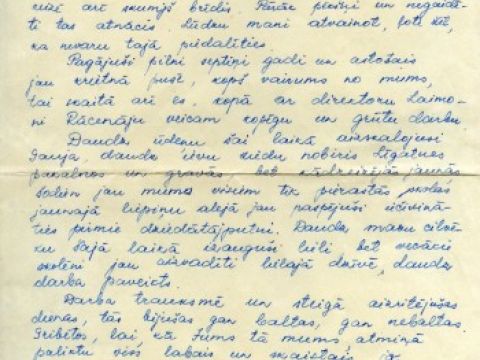 arī skumjš brīdis. Pārāk pēkšņi un negaidī-
ti tas atnācis. Lūdzu mani atvainot, ļoti žēl,
ka nevaru tajā piedalīties.
Pagājuši pilni septiņi gadi un astotais
jau krietnā pusē, kopš vairums no mums,
tai skaitā arī es, kopā ar direktoru Laimo-
ni Rūcenāju veicam kopīgu un grūtu darbu.
Daudz ūdeņu šai laikā aizskalojusi
Gauja, daudz ievu ziedu nobiris Līgatnes
pakalnos un gravās, bet kādreizējā jaunās
šodien jau mums visiem tik pierastās skolas
jaunajā liepiņu alejā jau paspējuši
ties pirmie dziedātājputni. Daudz mazu cilvē-
ku šajā laikā izauguši lieli bet vecāki
skolēni jau aizvadīti lielajā dzīvē, daudz
darba paveikts.
Darba trauksmē un steigā aizritējušas
dienas, tās bijušas gan baltas, gan nebaltas.
Gribētos, lai kā Jums tā mums atmiņā
paliktu viss labais un skaistais,